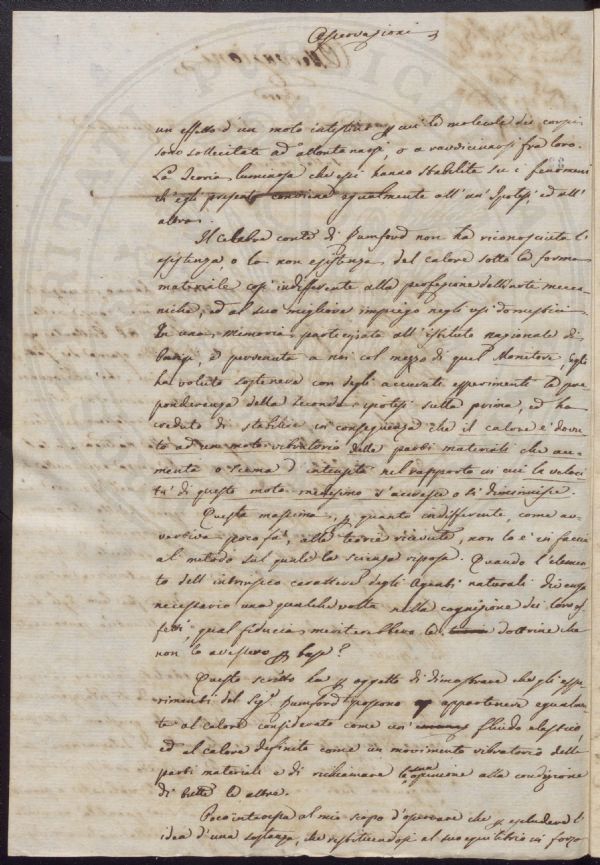 Osservazioni
un effetto d'un moto intestino p cui le molecole dei corpi
sono sollecitate ad allontanarsi, o a ravvicinarsi fra loro.
La Teoria luminosa che essi hanno stabilita su i fenomeni
ch'egli presenta conviene egualmente all'un'Ipotesi ed all'
altra.
Il Celebre conte di Rumford non ha riconosciuta l'
esistenza, o la non esistenza del calore sotto la forma
materiale così indifferente alla perfezione dell'arte mecca-
niche, ed al suo migliore impiego negli usi domestici.
In una Memoria partecipata all'istituto nazionale di
Parigi, e pervenuta a noi col mezzo di quel Monitore, Egli
ha voluto sostenere con degli accurati esperimenti la pre-
ponderanza della seconda ipotesi sulla prima, ed ha
creduto di stabilire in conseguenza che il calore è dovu-
to ad un moto vibratorio delle parti materiali che au-
menta o scema d'intensità nel rapporto in cui la veloci-
tà di questo moto medesimo s'accresce o si diminuisce.
Questa massima, p quanto indifferente, come av-
vertiva poco fa, alle teorie ricevute, non lo è in faccia
al metodo sul quale la scienza riposa. Quando l'elemen-
to dell'intrinseco carattere degli Agenti naturali divenga
necessario una qualche volta nella cognizione dei loro ef-
fetti, qual fiducia meriterebbero le dottrine che
non lo avessero p base?
Questo scritto ha p oggetto di dimostrare che gli espe-
rimenti del Sigr. Rumford possono appartenere egualmen-
te al calore considerato come un fluido elastico,
ed al calore definito come un movimento vibratorio delle
parti materiali e di richiamare la sua opinione alla condizione
di tutte le altre.
Poco interessa al mio scopo d'osservare che p escludere l'
idea d'una sostanza, che restituendosi al suo equilibrio in forza